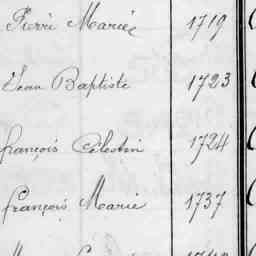 Pierre Marie 1719
Jean Baptiste 1723
françois Célestin 1724
françois Marie 1737